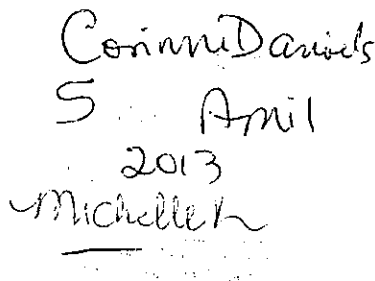 Corinne Daniels
5 April
2013
Michelle h